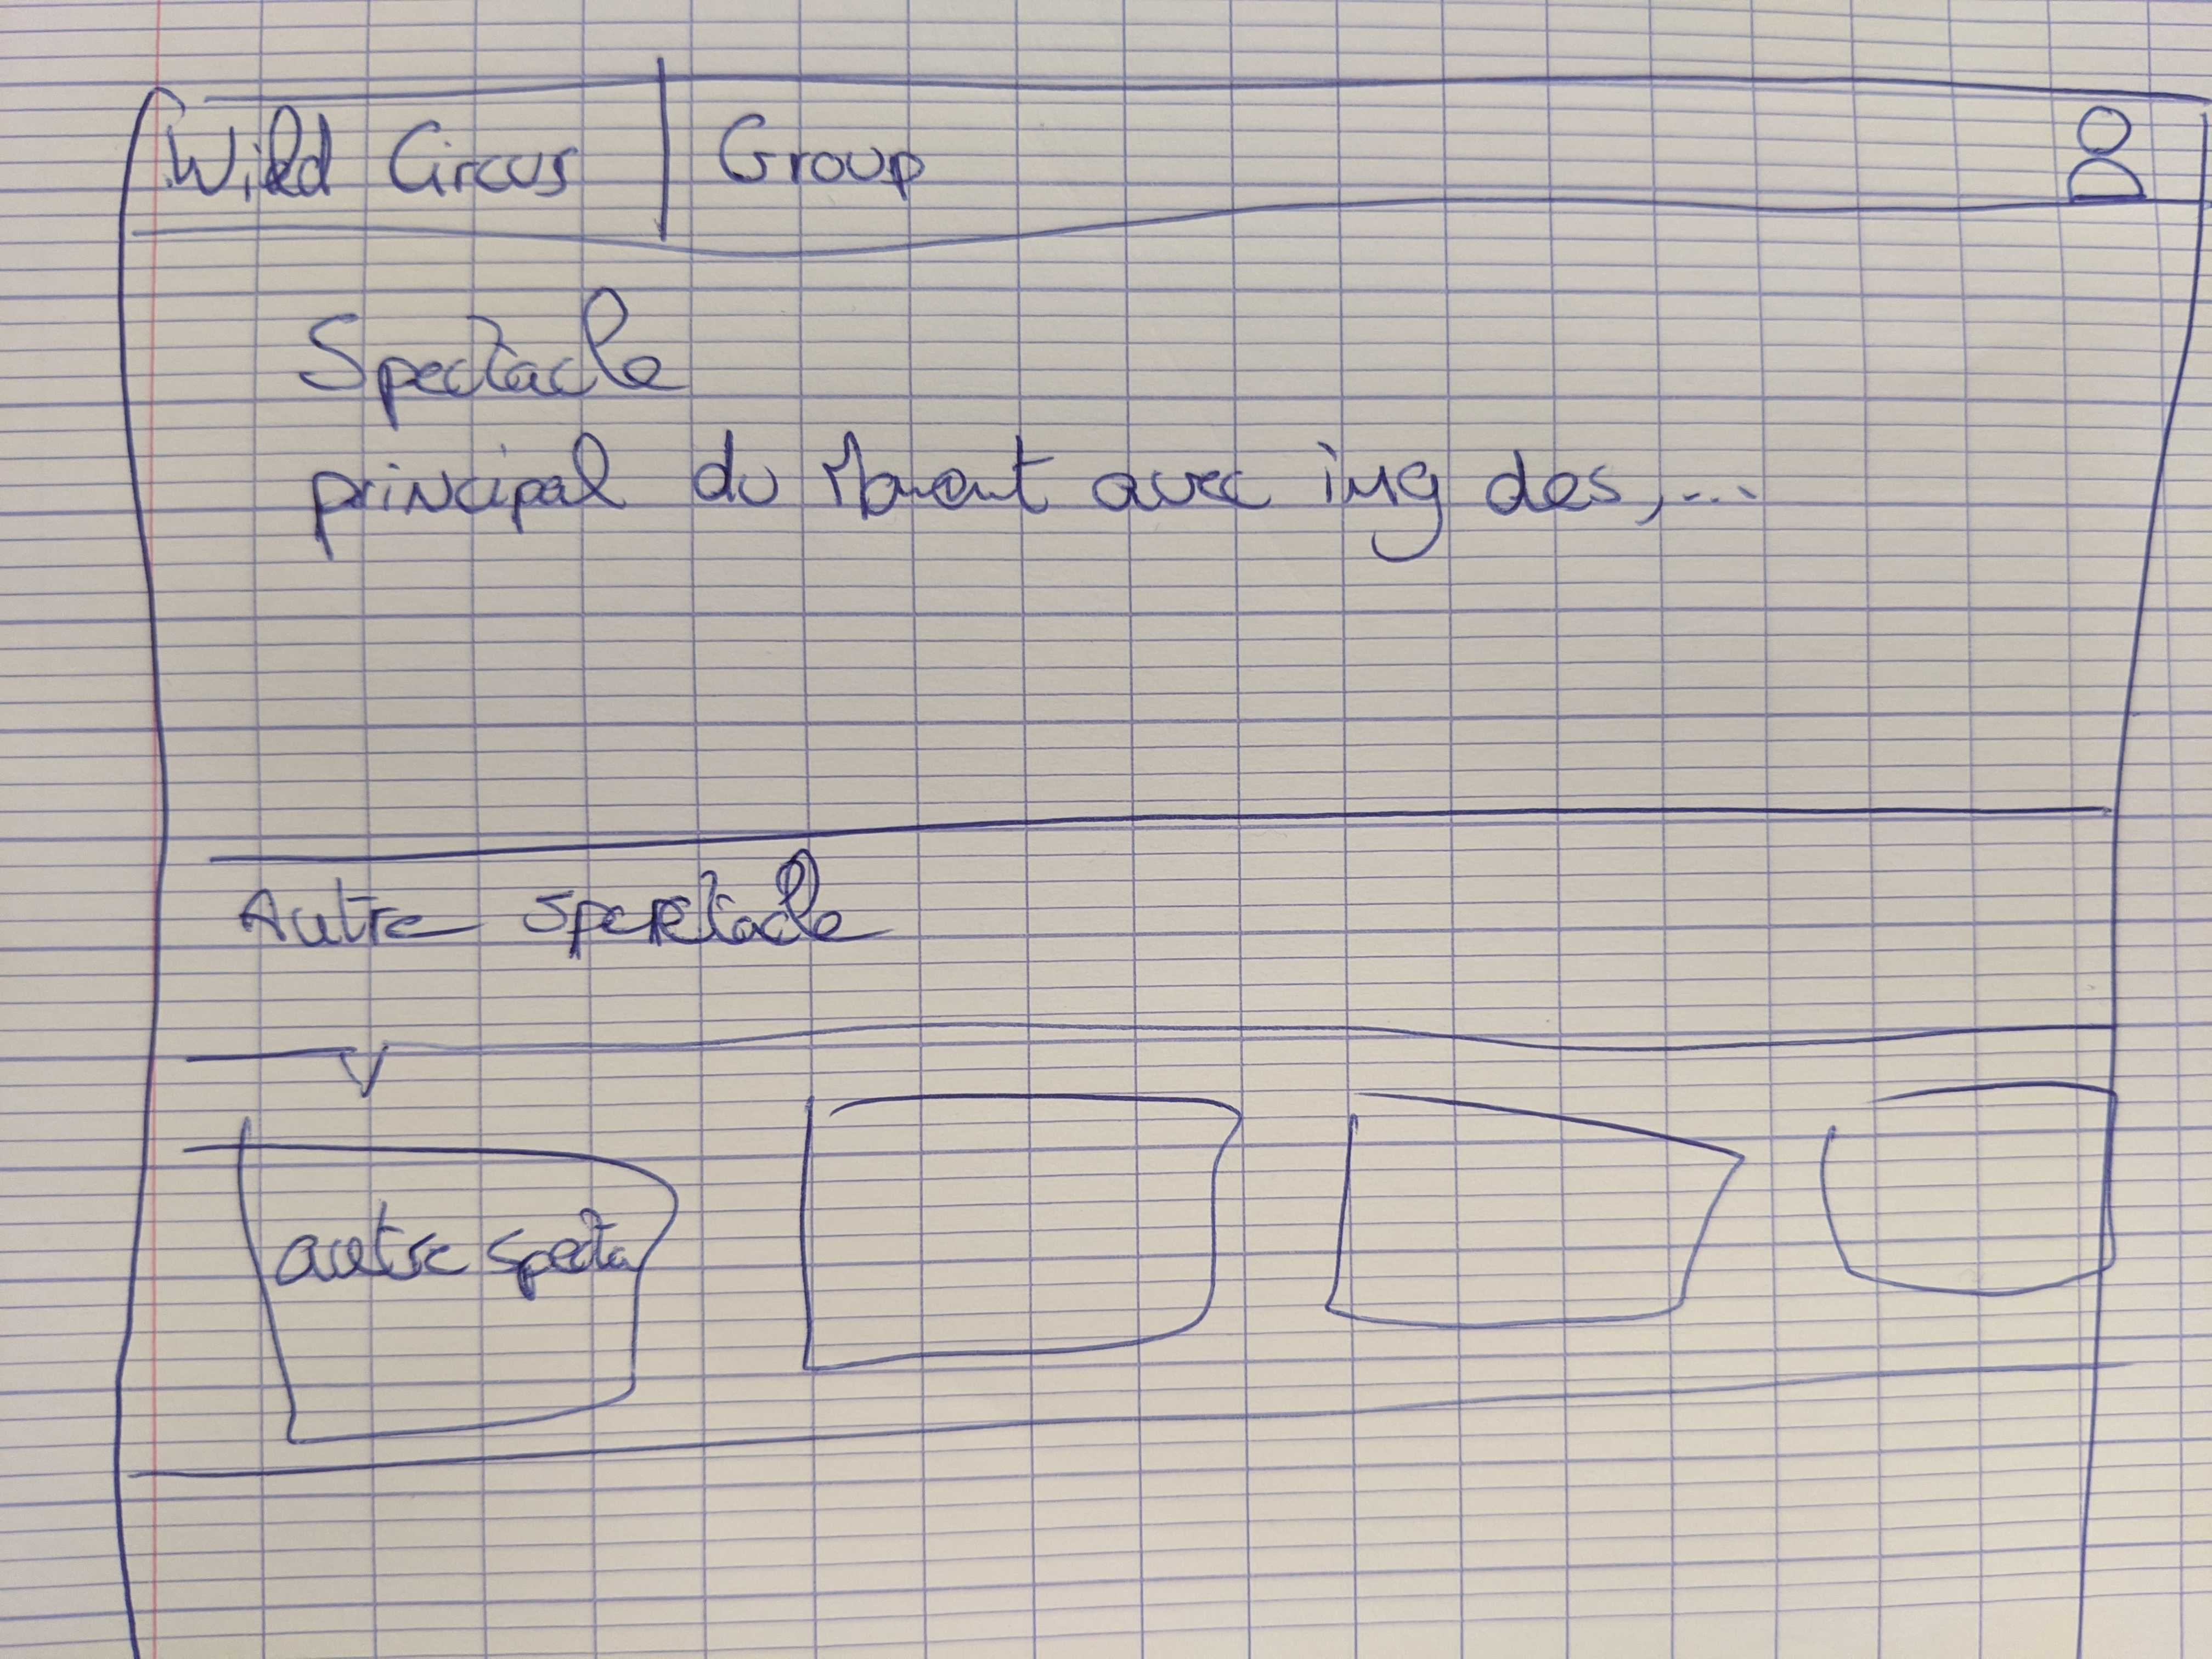 Wild Circus Group
Spectacle
principal du Moment avec img des,...
Autre spectacle
autre specta